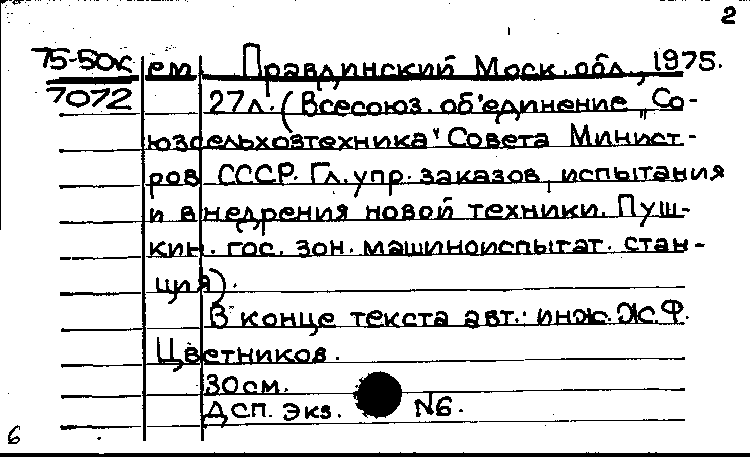 2
75-50к ем Правдинский Моск. обл., 1975.
7072 27л. (Всесоюз. об'единение „Со-
юзсельхозтехника" Совета Минист-
ров СССР. Гл. упр. заказов, испытания
и внедрения новой техники. Пуш-
кин. гос. зон. машиноиспытат. стан-
ция).
В конце текста авт.: инж. Ж.Ф.
Цветников.
30см.
ДСП. Экз. N6.
6